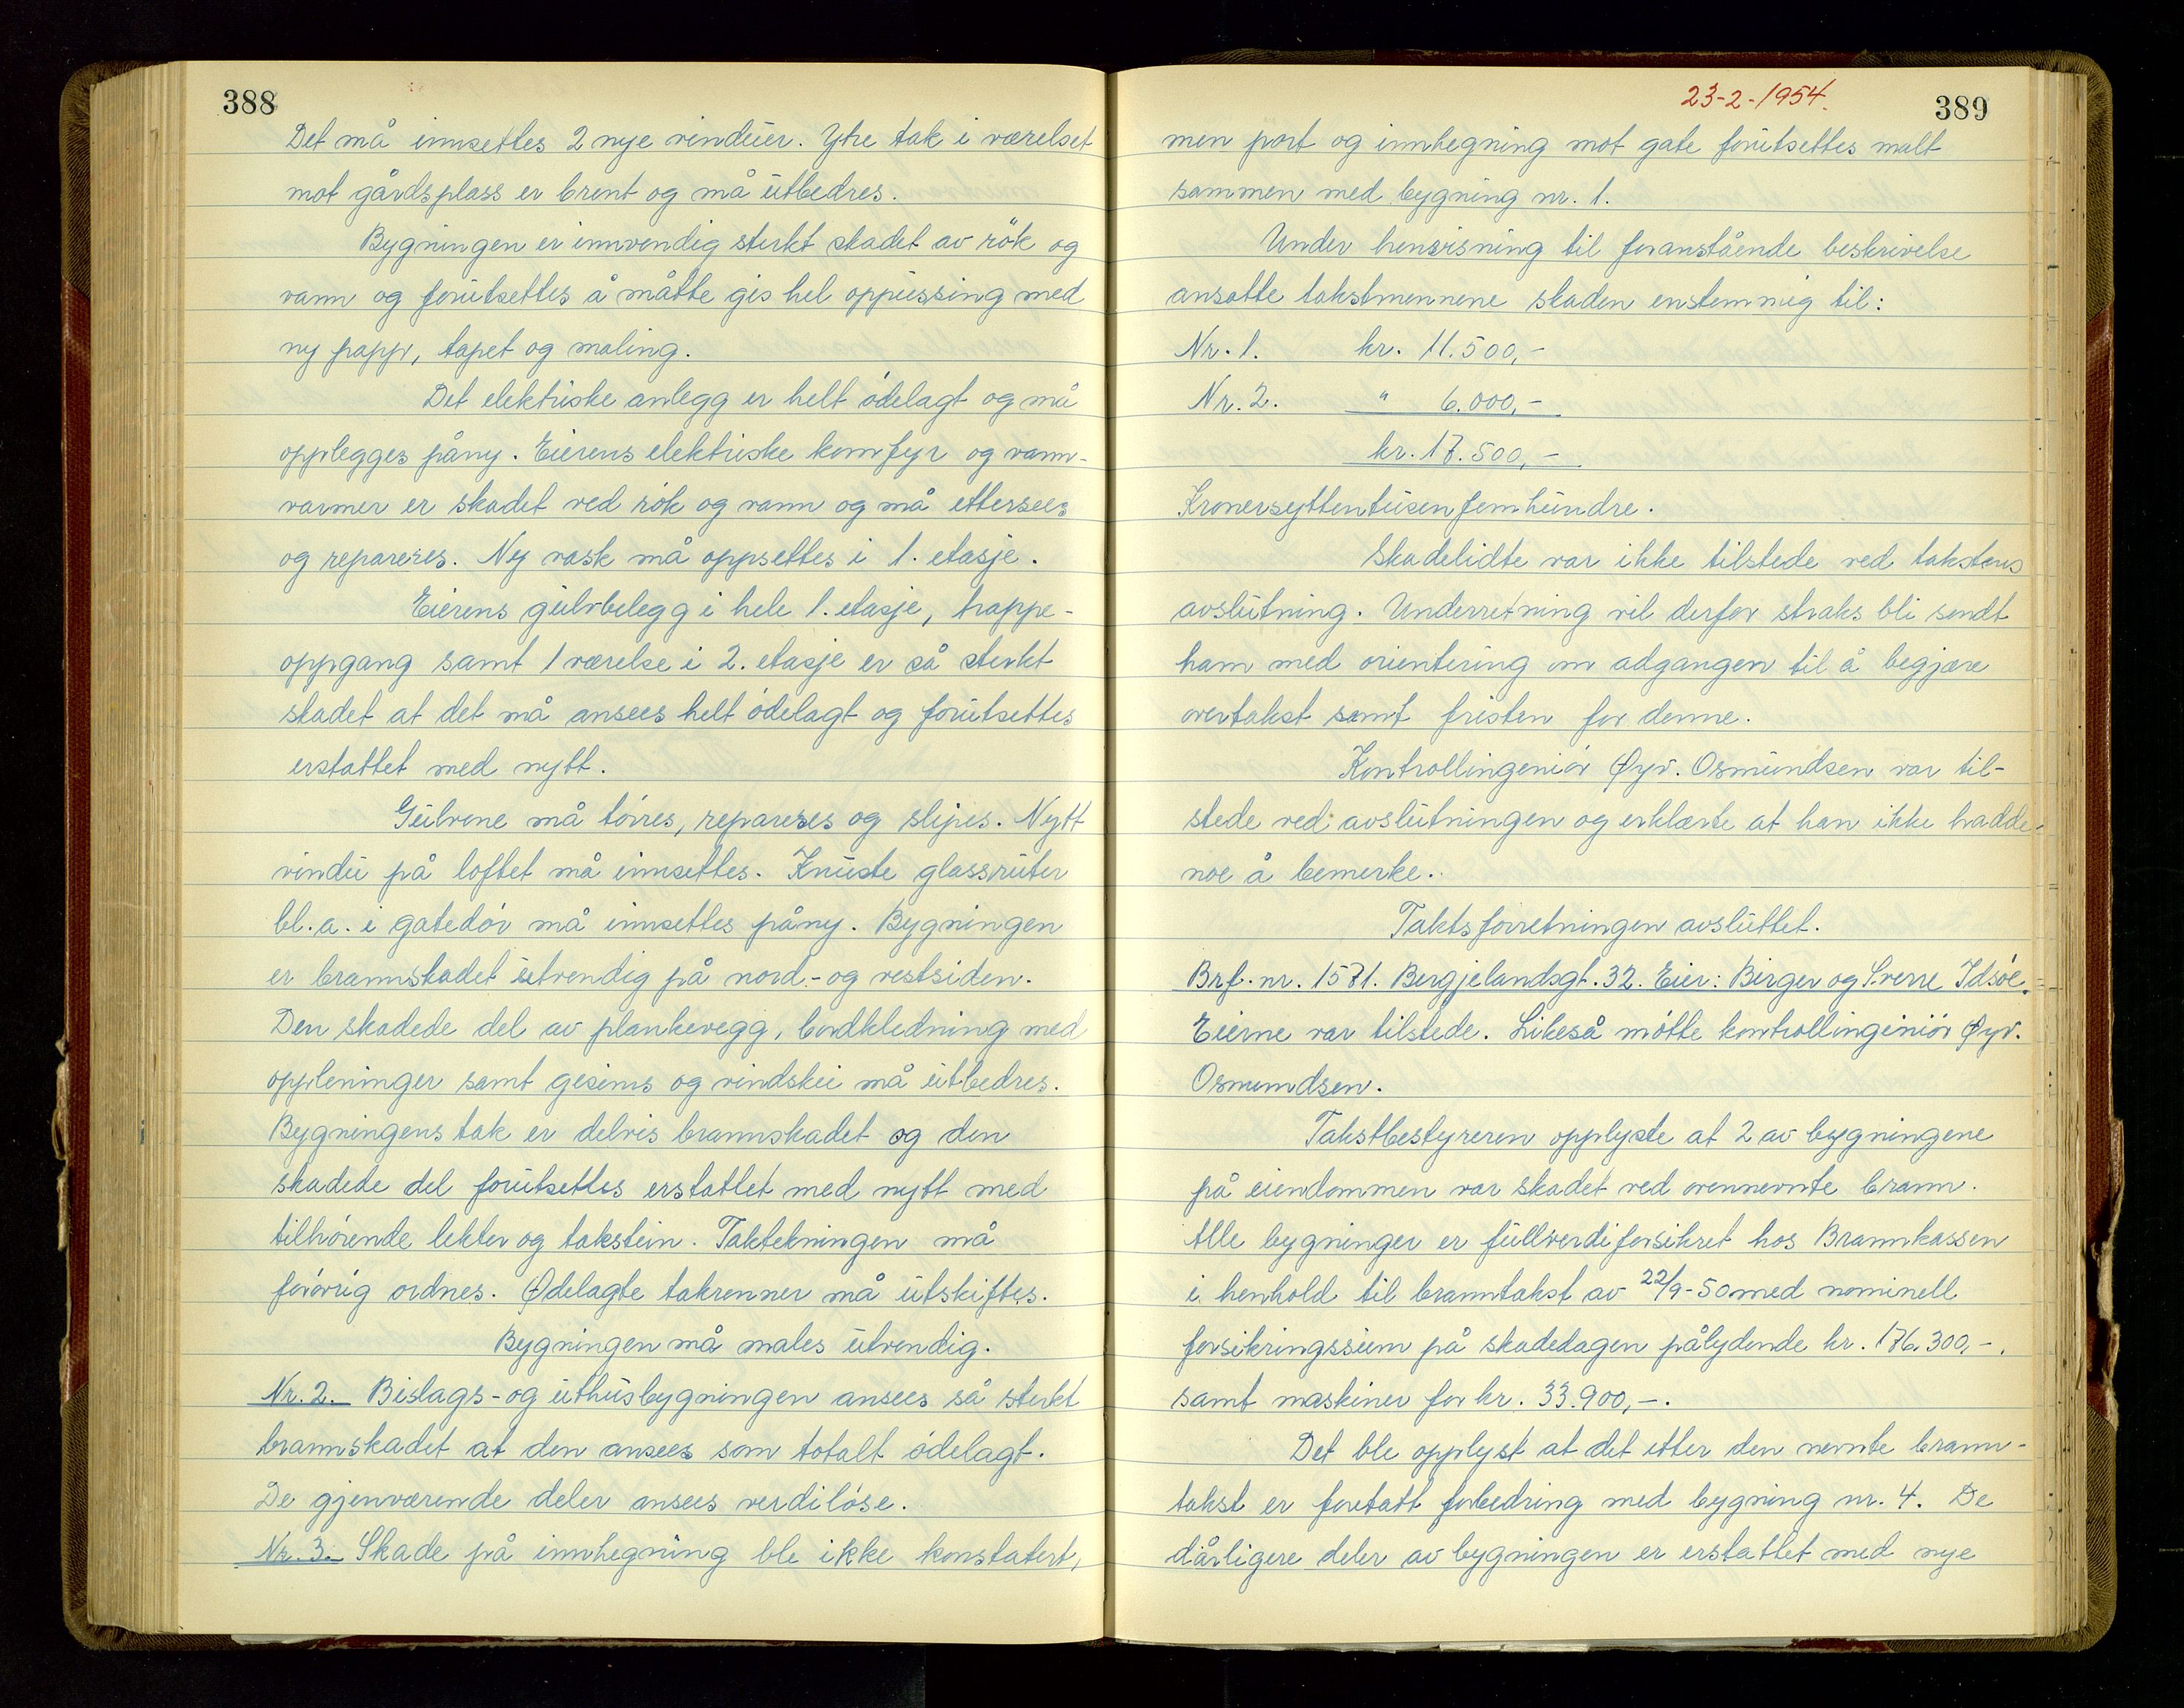 388
Det må innsettes 2 nye vinduer. Ytre tak i værelset
mot gårdsplass er brent og må utbedres.
Bygningen er innvendig sterkt skadet av rök og
vann og forutsettes å måtte gis hel oppussing med
ny papp, tapet og maling.
Det elektriske anlegg er helt ödelagt og må
opplegges påny. Eierens elektriske komfyr og vann-
varmer er skadet ved rök og vann og må ettersees
og repareres. Ny vask må oppsettes i 1. etasje.
Eierens gulvbelegg i hele 1. etasje, trappe-
oppgang samt 1 værelse i 2. etasje er så sterkt
skadet at det må ansees helt ödelagt og forutsettes
erstattet med nytt.
Gulvene må törres, repareres og slipes. Nytt
vindu på loftet må innsettes. Knuste glassruter
bl.a. i gatedör må innsettes påny. Bygningen
er brannskadet utvendig på nord- og vestsiden.
Den skadede del av plankevegg, bordkledning med
oppleninger samt gesims og vindskei må utbedres.
Bygningens tak er delvis brannskadet og den
skadede del forutsettes erstattet med nytt med
tilhörende lekter og takstein. Taktekningen må
forövrig ordnes. Ødelagte takrenner må utskiftes.
Bygningen må males utvendig.
Nr. 2. Bislags- og uthusbygningen ansees så sterkt
brannskadet at den ansees som totalt ödelagt.
De gjenværende deler ansees verdilöse.
Nr. 3. Skade på innhegning ble ikke konstatert,
23-2-1954.
389
men port og innhegning mot gate forutsettes malt
sammen med bygning nr. 1.
Under henvisning til foranstående beskrivelse
ansatte takstmennene skaden enstemmig til:
Nr. 1. kr. 11.500,-
Nr. 2. " 6.000,-
kr. 17.500,-
Kronersyttentusenfemhundre.
Skadelidte var ikke tilstede ved takstens
avslutning. Underretning vil derfor straks bli sendt
ham med orientering om adgangen til å begjære
overtakst samt fristen for denne.
Kontrollingeniör Øyv. Osmundsen var til-
stede ved avslutningen og erklærte at han ikke hadde
noe å bemerke.
Taktsforretningen avsluttet.
Brf. nr. 1571. Bergjelandsgt. 32. Eier: Birger og Sverre Idsöe.
Eierne var tilstede. Likeså mötte kontrollingeniör Øyv.
Osmundsen.
Takstbestyreren opplyste at 2 av bygningene
på eiendommen var skadet ved ovennevnte brann.
Alle bygninger er fullverdiforsikret hos Brannkassen
i henhold til branntakst av 22/9-50 med nominell
forsikringssum på skadedagen pålydende kr. 176.300,-.
samt maskiner for kr. 33.900,-.
Det ble opplyst at det etter den nevnte brann-
takst er foretatt forbedring med bygning nr. 4. De
dårligere deler av bygningen er erstattet med nye